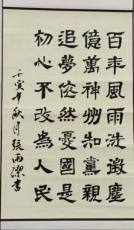 百年風雨洗激塵
億萬神州知黨親
追夢悠然憂國是
初心不改為人民
壬寅年秋月張雨潔書